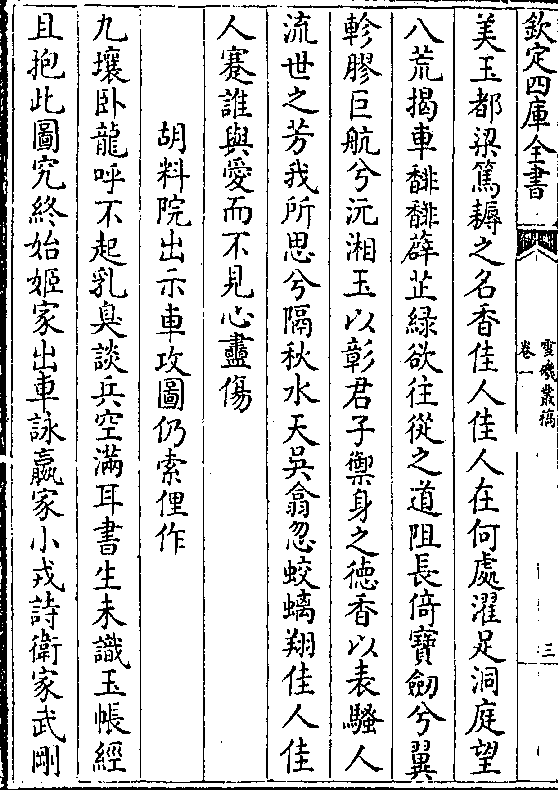 欽定四庫全書
雲磯叢稿
卷一
三
美玉都梁篤耨之名香佳人佳人在何處濯足洞庭望
八荒揭車馡馡薜芷緑欲往從之道阻長倚寶劒兮翼
軫膠巨航兮沅湘玉以彰君子禦身之徳香以表騷人
流世之芳我所思兮隔秋水天吳翕忽蛟螭翔佳人佳
人蹇誰與愛而不見心盡傷
胡料院出示車攻圖仍索俚作
九壤卧龍呼不起乳臭談兵空滿耳書生未識玉帳經
且抱此圖究終始姬家出車詠嬴家小戎詩衛家武剛